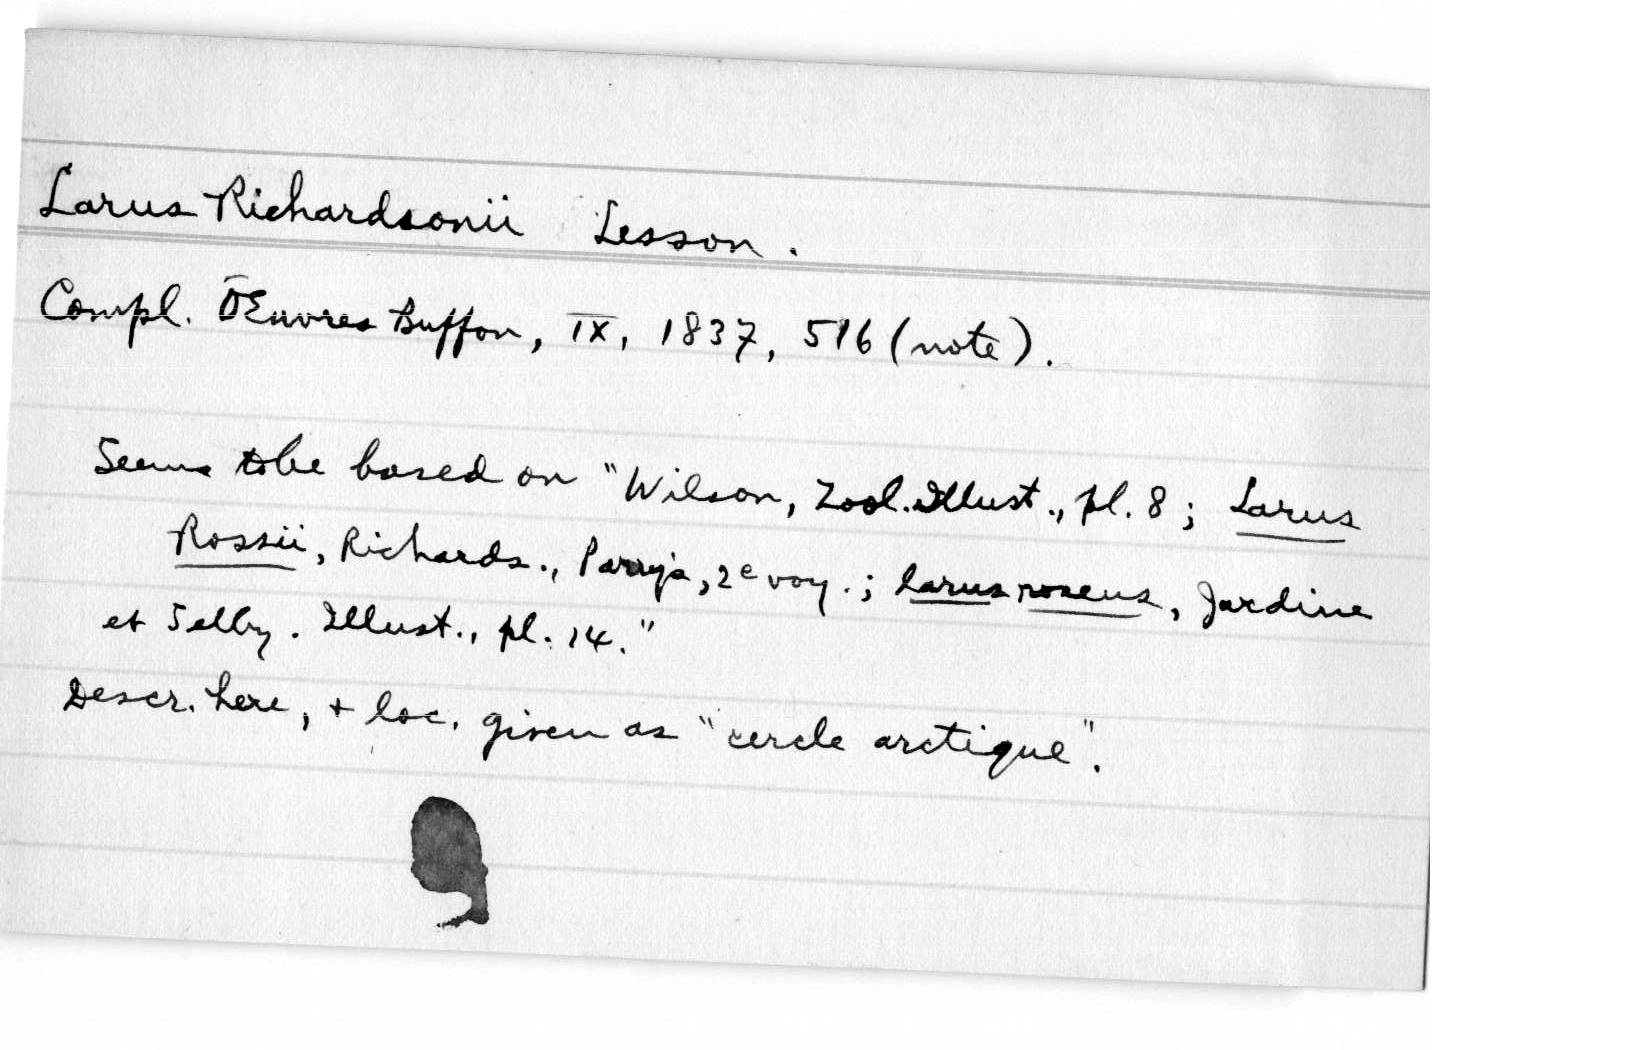 Larus Richardsonii Lesson.
Compl. OEuvres Buffon, IX, 1837, 516 (note).
Seems to be based on "Wilson, Zool. Illust., pl. 8; Larus
Rossii, Richards., Parry's, 2e voy.; Larus roseus, Jardine
et Selby. Illust., pl. 14."
Descr. here, + loc. given as "cercle arctique".